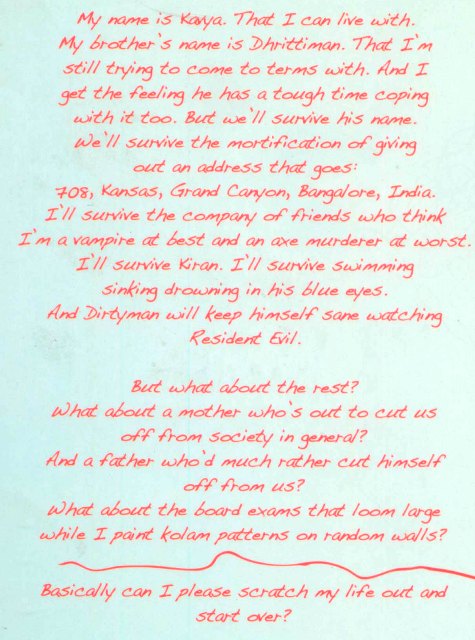 My name is Kavya. That I can live with.
My brother's name is Dhrittiman. That I'm
still trying to come to terms with. And I
get the feeling he has a tough time coping
with it too. But we'll survive his name.
We'll survive the mortification of giving
out an address that goes:
708, Kansas, Grand Canyon, Bangalore, India.
I'll survive the company of friends who think
I'm a vampire at best and an axe murderer at worst.
I'll survive Kiran. I'll survive swimming
sinking drowning in his blue eyes.
And Dirtyman will keep himself sane watching
Resident Evil.
But what about the rest?
What about a mother who's out to cut us
off from society in general?
And a father who'd much rather cut himself
off from us?
What about the board exams that loom large
while I paint kolam patterns on random walls?
Basically can I please scratch my life out and
start over?